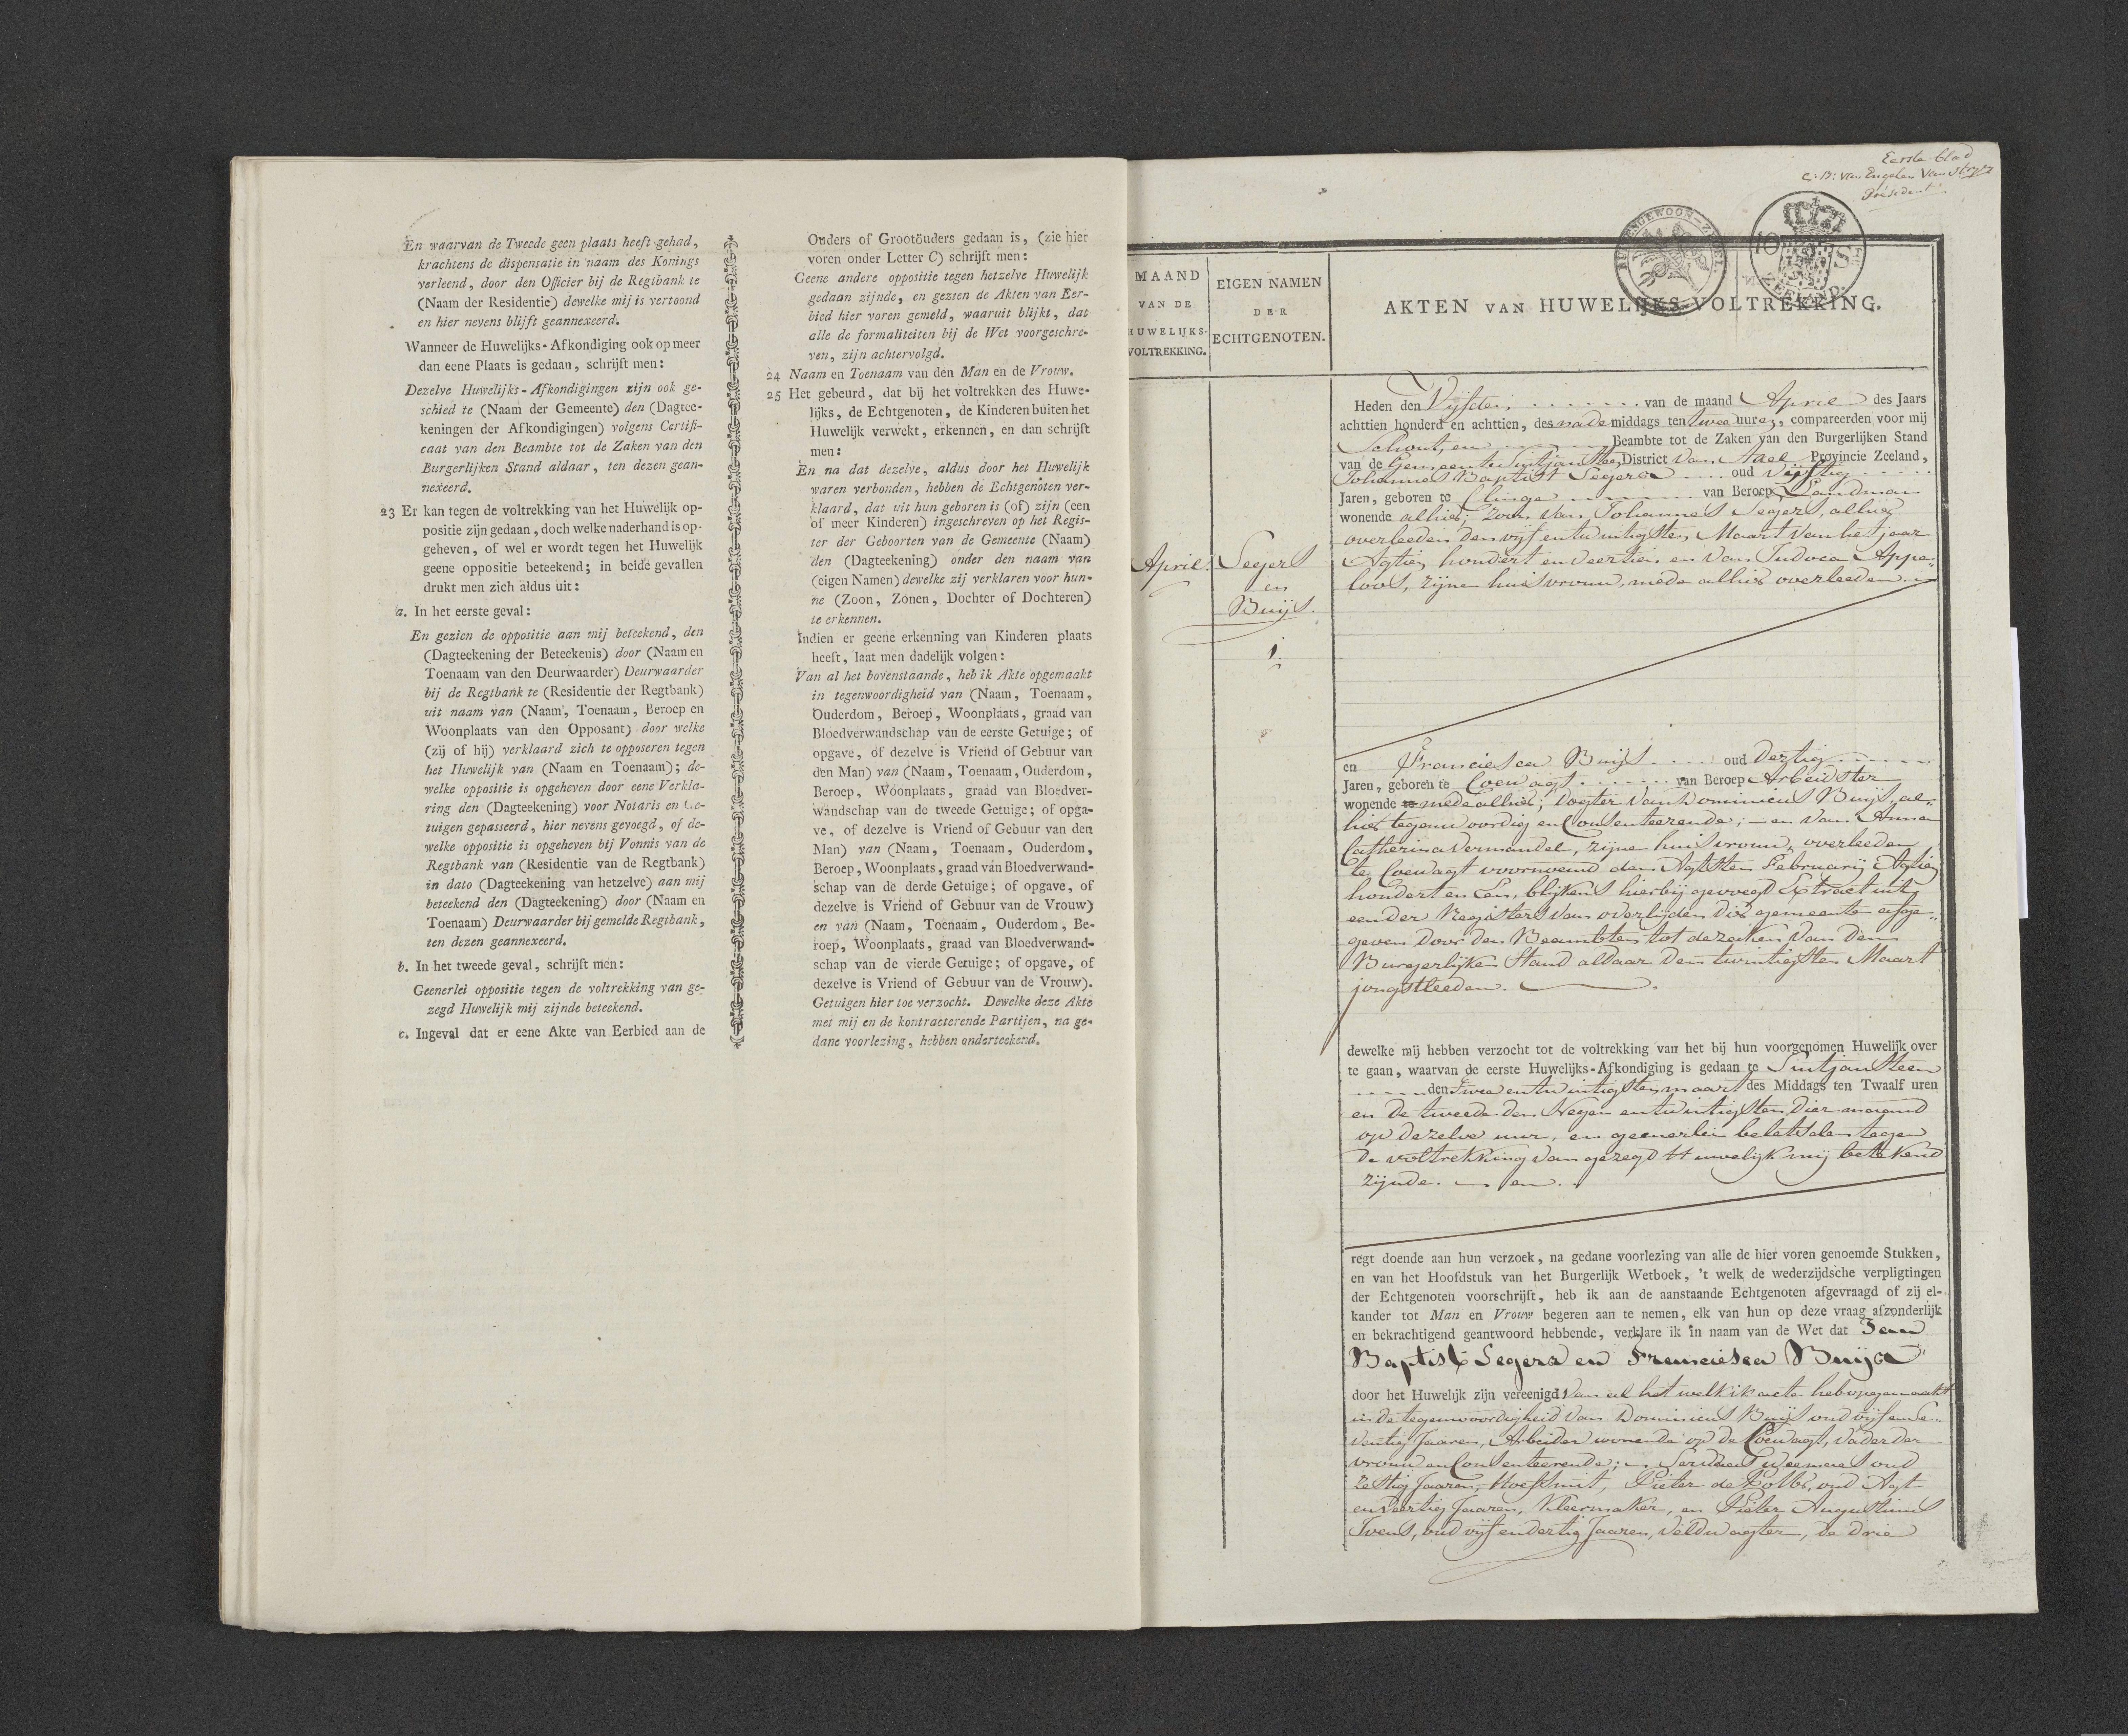 En waarvan de Tweede geen plaats heeft gehad,
krachtens de dispensatie in naam des Konings
verleend, door den Officier bij de Regtbank te
(Naam der Residentie) dewelke mij is vertoond
en hier nevens blijft geannexeerd.
Wanneer de Huwelijks-Afkondiging ook op meer
dan eene Plaats is gedaan, schrijft men:
Dezelve Huwelijks-Afkondigingen zijn ook ge-
schied te (Naam der Gemeente) den (Dagtee-
keningen der Afkondigingen) volgens Certifi-
caat van den Beambte tot de Zaken van den
Burgerlijken Stand aldaar, ten dezen gean-
nexeerd.
23 Er kan tegen de voltrekking van het Huwelijk op-
positie zijn gedaan, doch welke naderhand is op-
geheven, of wel er wordt tegen het Huwelijk
geene oppositie beteekend; in beide gevallen
drukt men zich aldus uit:
a. In het eerste geval:
En gezien de oppositie aan mij beteekend, den
(Dagteekening der Beteekenis) door (Naam en
Toenaam van den Deurwaarder) Deurwaarder
bij de Regtbank te (Residentie der Regtbank)
uit naam van (Naam, Toenaam, Beroep en
Woonplaats van den Opposant) door welke
(zij of hij) verklaard zich te opposeren tegen
het Huwelijk van (Naam en Toenaam); de-
welke oppositie is opgeheven door eene Verkla-
ring den (Dagteekening) voor Notaris en Ge-
tuigen gepasseerd, hier nevens gevoegd, of de-
welke oppositie is opgeheven bij Vonnis van de
Regtbank van (Residentie van de Regtbank)
in dato (Dagteekening van hetzelve) aan mij
beteekend den (Dagteekening) door (Naam en
Toenaam) Deurwaarder bij gemelde Regtbank,
ten dezen geannexeerd.
b. In het tweede geval, schrijft men:
Geenerlei oppositie tegen de voltrekking van ge-
zegd Huwelijk mij zijnde beteekend.
c. Ingeval dat er eene Akte van Eerbied aan de
Ouders of Grootouders gedaan is, (zie hier
voren onder Letter C) schrijft men:
Geene andere oppositie tegen hetzelve Huwelijk
gedaan zijnde, en gezien de Akten van Eer-
bied hier voren gemeld, waaruit blijkt, dat
alle de formaliteiten bij de Wet voorgeschre-
ven, zijn achtervolgd.
24 Naam en Toenaam van den Man en de Vrouw.
25 Het gebeurd, dat bij het voltrekken des Huwe-
lijks, de Echtgenoten, de Kinderen buiten het
Huwelijk verwekt, erkennen, en dan schrijft
men:
En na dat dezelve, aldus door het Huwelijk
waren verbonden, hebben de Echtgenoten ver-
klaard, dat uit hun geboren is (of) zijn (een
of meer Kinderen) ingeschreven op het Regis-
ter der Geboorten van de Gemeente (Naam)
den (Dagteekening) onder den naam van
(eigen Namen) dewelke zij verklaren voor hun-
ne (Zoon, Zonen, Dochter of Dochteren)
te erkennen.
Indien er geene erkenning van Kinderen plaats
heeft, laat men dadelijk volgen:
Van al het bovenstaande, heb ik Akte opgemaakt
in tegenwoordigheid van (Naam, Toenaam,
Ouderdom, Beroep, Woonplaats, graad van
Bloedverwandschap van de eerste Getuige; of
opgave, of dezelve is Vriend of Gebuur van
den Man) van (Naam, Toenaam, Ouderdom,
Beroep, Woonplaats, graad van Bloedver-
wandschap van de tweede Getuige; of opga-
ve, of dezelve is Vriend of Gebuur van den
Man) van (Naam, Toenaam, Ouderdom,
Beroep, Woonplaats, graad van Bloedverwand-
schap van de derde Getuige; of opgave, of
dezelve is Vriend of Gebuur van de Vrouw)
en van (Naam, Toenaam, Ouderdom, Be-
roep, Woonplaats, graad van Bloedverwand-
schap van de vierde Getuige; of opgave, of
dezelve is Vriend of Gebuur van de Vrouw).
Getuigen hier toe verzocht. Dewelke deze Akte
met mij en de kontracterende Partijen, na ge-
dane voorlezing, hebben onderteekend.
Eerste blad
C: D: van Engelen van
President
BUITENGEWOON-ZEGEL.
10 S
ZEELAND.
MAAND
VAN DE
HUWELIJKS-
VOLTREKKING.
EIGEN NAMEN
DER
ECHTGENOTEN.
AKTEN VAN HUWELIJKS-VOLTREKKING.
April.
Segers
en
Buijs.
1.
Heden den Vijfden van de maand April des Jaars
achttien honderd en achttien, des nade middags ten twee uuren, compareerden voor mij
Schout, en Beambte tot de Zaken van den Burgerlijken Stand
van de Gemeente Sintjansteen, District van Axel Provincie Zeeland,
Johannes Baptist Segers oud Vijftig
Jaren, geboren te Clinge van Beroep Landman
wonende alhier; zoon van Johannes Segers, alhier
overleeden den vijf en twintigsten Maart van het jaar
Agtien hondert en veertien en van Judoca Appe-
loos, zijne huisvrouw, mede alhier overleeden.
en Franciesca Buijs oud dertig
Jaren, geboren te Coewagt van Beroep Arbeidster
wonende te mede alhier; dogter van Dominicus Buijs, al-
hier tegenwoordig en Consenteerende; en van Anna
Catherina Vermandel, zijne huisvrouw, overleeden
te Coewagt voornoemd den Agtsten February Agtien
hondert en Een, blijkens hierbij gevoegd Extract uit
een der Registers van overlijden dier gemeente afge-
geven door den Beambten tot de zaken van den
Burgerlijken Stand aldaar den twintigsten Maart
jongstleeden.
dewelke mij hebben verzocht tot de voltrekking van het bij hun voorgenomen Huwelijk over
te gaan, waarvan de eerste Huwelijks-Afkondiging is gedaan te Sintjansteen
den Twee en twintigsten maart des Middags ten Twaalf uren
en de tweede den Negen en twintigsten dier maand
op dezelve uur, en geenerlei beletselen tegen
de voltrekking van gezegd Huwelijk mij betekend
zijnde. en.
regt doende aan hun verzoek, na gedane voorlezing van alle de hier voren genoemde Stukken,
en van het Hoofdstuk van het Burgerlijk Wetboek, 't welk de wederzijdsche verpligtingen
der Echtgenoten voorschrijft, heb ik aan de aanstaande Echtgenoten afgevraagd of zij el-
kander tot Man en Vrouw begeren aan te nemen, elk van hun op deze vraag afzonderlijk
en bekrachtigend geantwoord hebbende, verklare ik in naam van de Wet dat Jan
Baptist Segers en Franciesca Buijs
door het Huwelijk zijn vereenigd Van al het welk ik acte heb opgemaakt
in de tegenwoordigheid van Dominicus Buijs oud vijf en Se-
ventig Jaaren, Arbeider wonende op de Coewagt, vader der
vrouw en Consenteerende; oud
Zestig Jaaren, Hoefsmit, Pieter de Potter, oud Agt
en veertig Jaaren, Kleermaker, en Pieter Augustinus
Ivens, oud vijf en dertig Jaaren, veldwagter, de drie